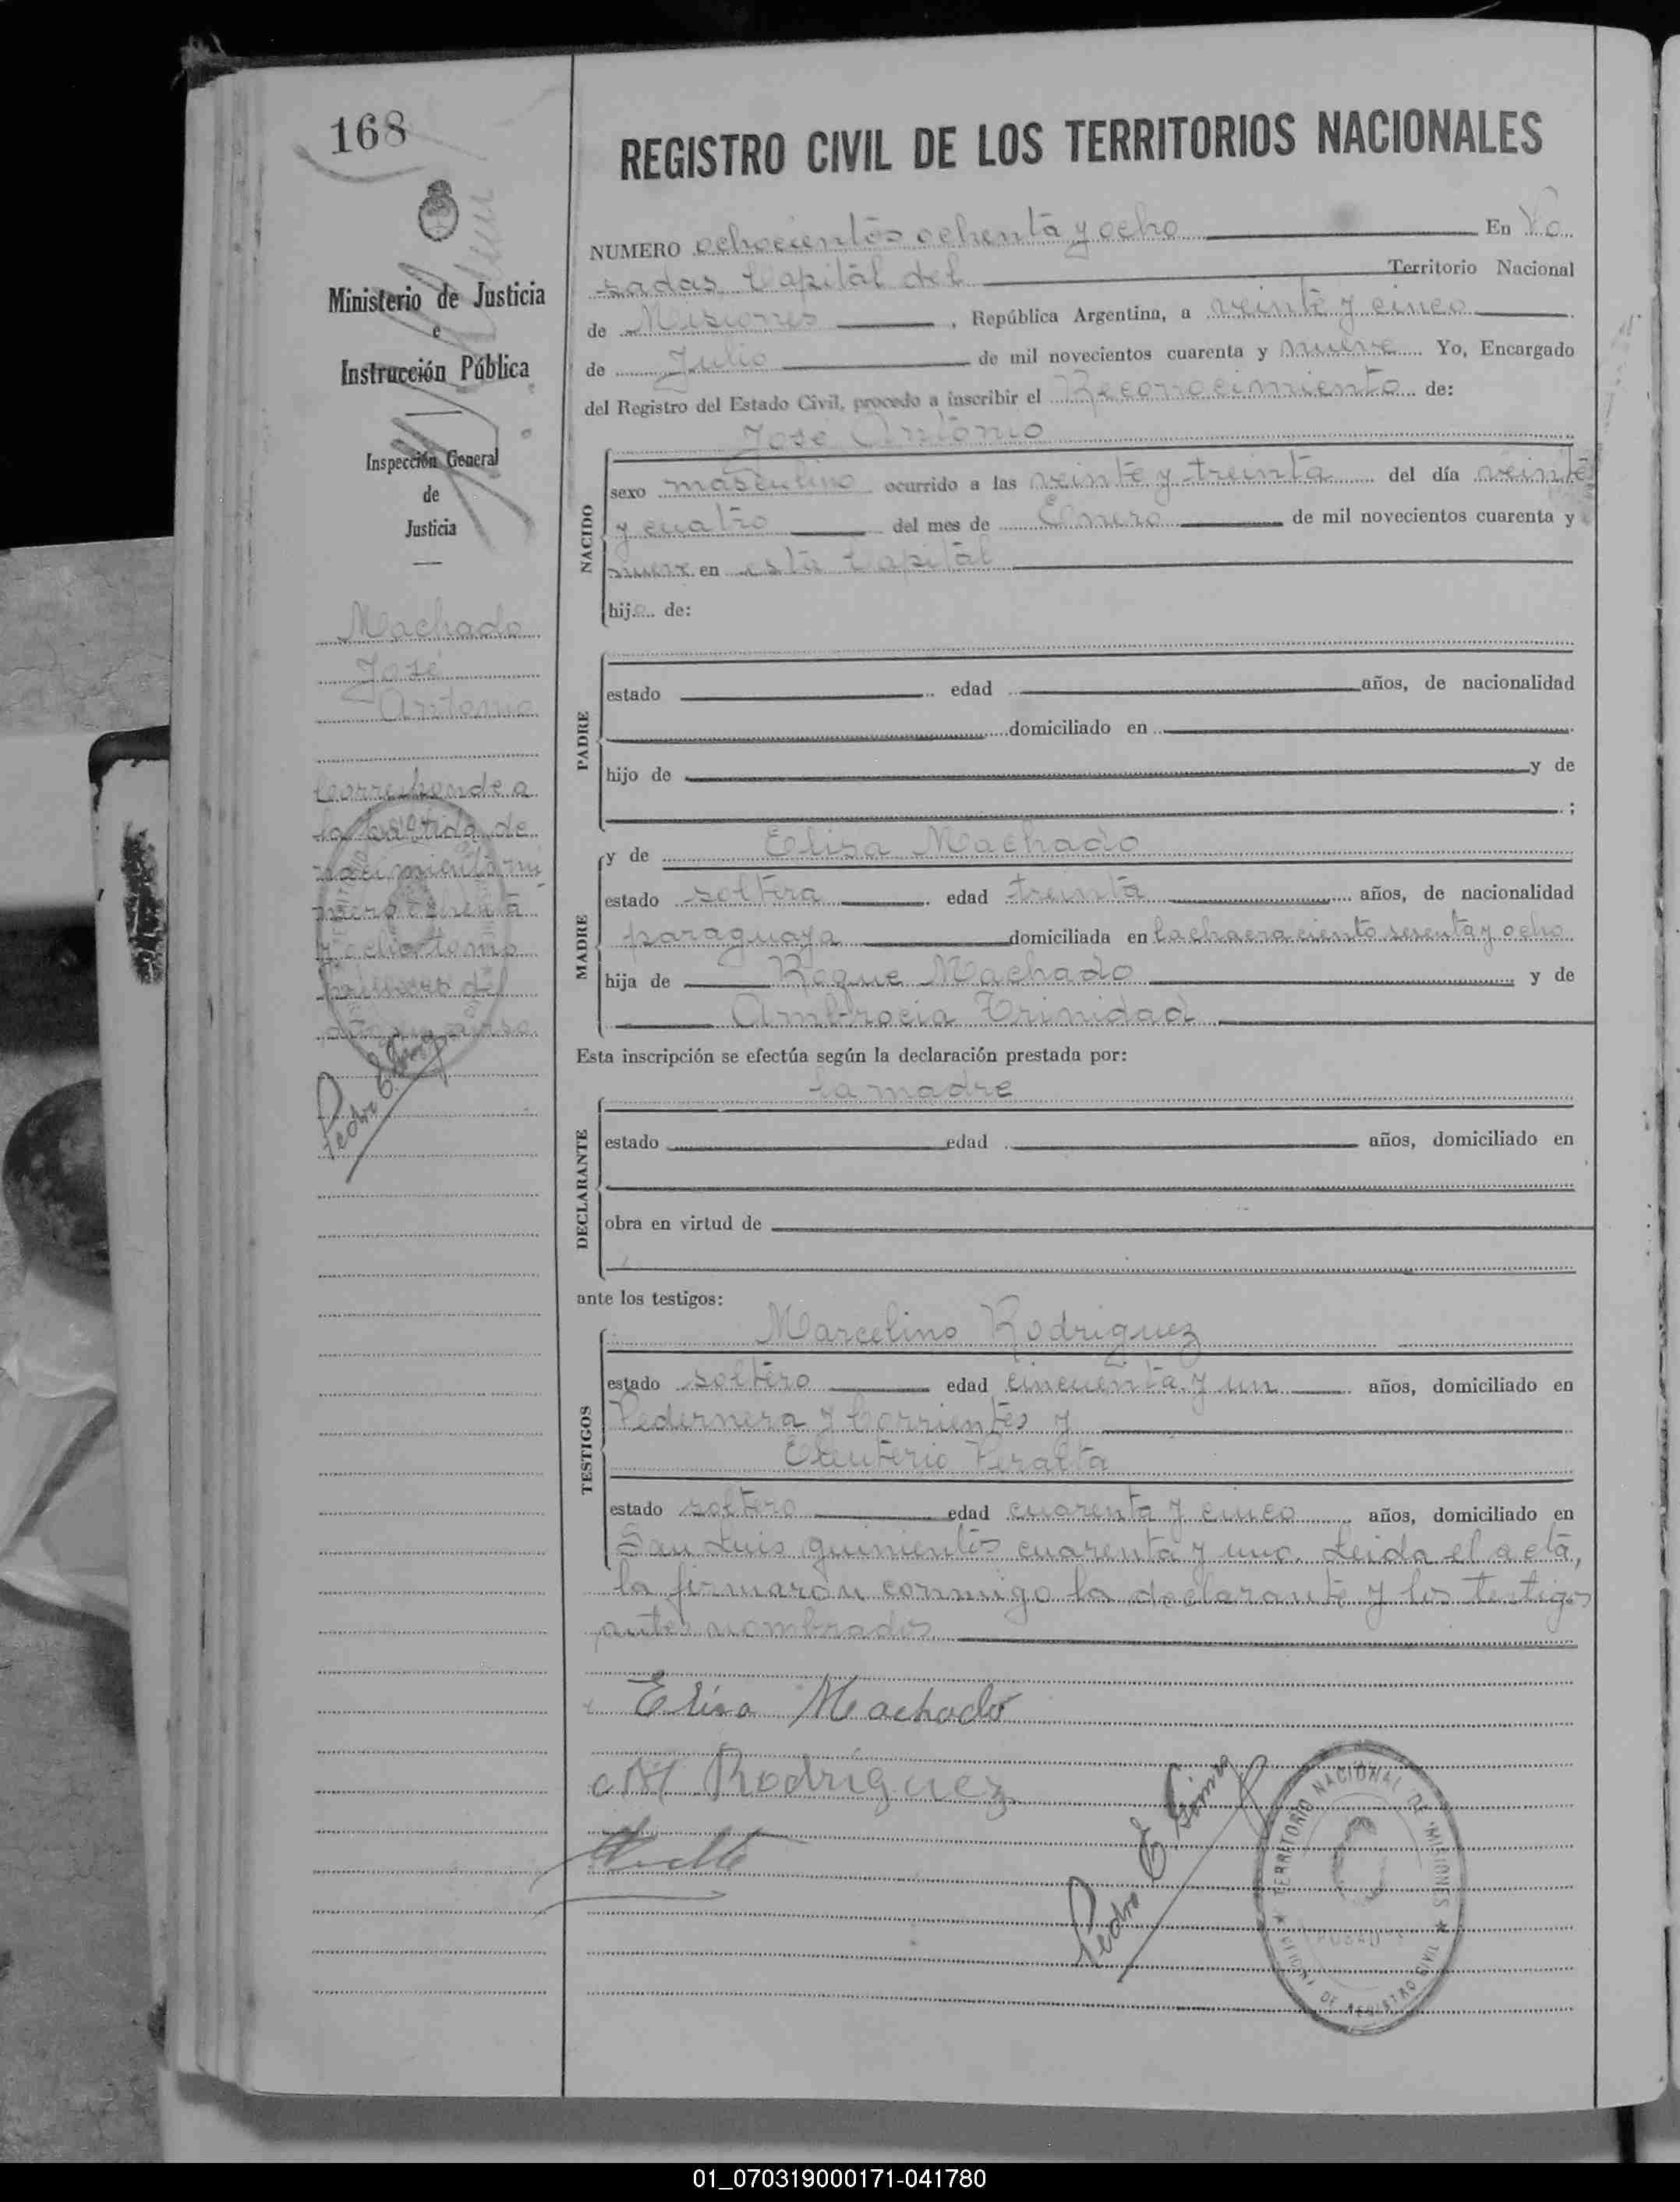 168
REGISTRO CIVIL DE LOS TERRITORIOS NACIONALES
NUMERO ochocientos ochenta y ocho En Po
sadas Capital del Territorio Nacional
de Misiones, República Argentina, a veinte y cinco
de Julio de mil novecientos cuarenta y nueve Yo, Encargado
del Registro del Estado Civil, procedo a inscribir el Reconocimiento de:
José Antonio
NACIDO
sexo masculino ocurrido a las veinte y treinta del día veinte
y cuatro del mes de Enero de mil novecientos cuarenta y
nueve en esta Capital
hijo de:
PADRE
estado edad años, de nacionalidad
domiciliado en
hijo de y de
;
MADRE
y de Elisa Machado
estado soltera edad treinta años, de nacionalidad
paraguaya domiciliada en la chacra ciento sesenta y ocho
hija de Roque Machado y de
Ambrocia Trinidad
Esta inscripción se efectúa según la declaración prestada por:
la madre
DECLARANTE
estado edad años, domiciliado en
obra en virtud de
ante los testigos:
TESTIGOS
Marcelino Rodriguez
estado soltero edad cincuenta y un años, domiciliado en
Pedernera y Corrientes y
Eleuterio Peralta
estado soltero edad cuarenta y cinco años, domiciliado en
San Luis quinientos cuarenta y uno. Leida el acta,
la firmaron conmigo la declarante y los testigos
antes nombrados
Elisa Machado
M Rodríguez
Pedro E Gimez
TERRITORIO NACIONAL DE MISIONES
POSADAS
OFICINA DE REGISTRO CIVIL
Ministerio de Justicia
e
Instrucción Pública
Inspección General
de
Justicia
Machado
José
Antonio
Corresponde a
la partida de
nacimiento nú
mero ochenta
y ocho tomo
primero del
año en curso
Pedro E
01_070319000171-041780